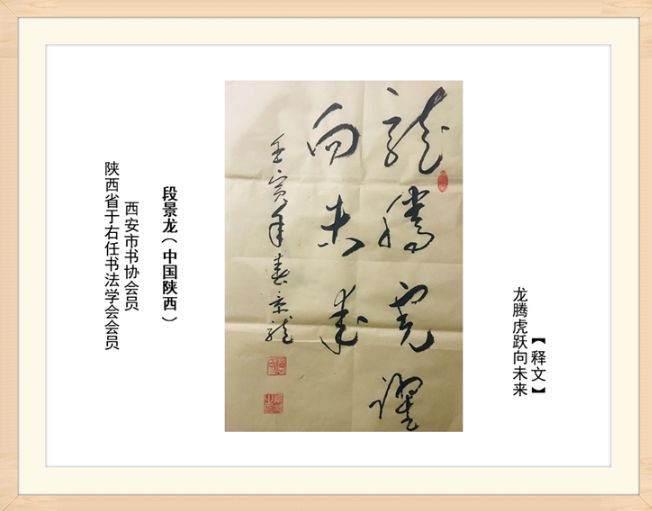 【释文】
龙腾虎跃向未来
龍騰虎躍
向未来
壬寅年春景龙
段景龙（中国陕西）
西安市书协会员
陕西省于右任书法学会会员